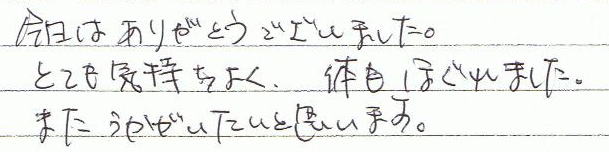 今日はありがとうございました。
とても気持ちよく、体もほぐれました。
またうかがいたいと思います。